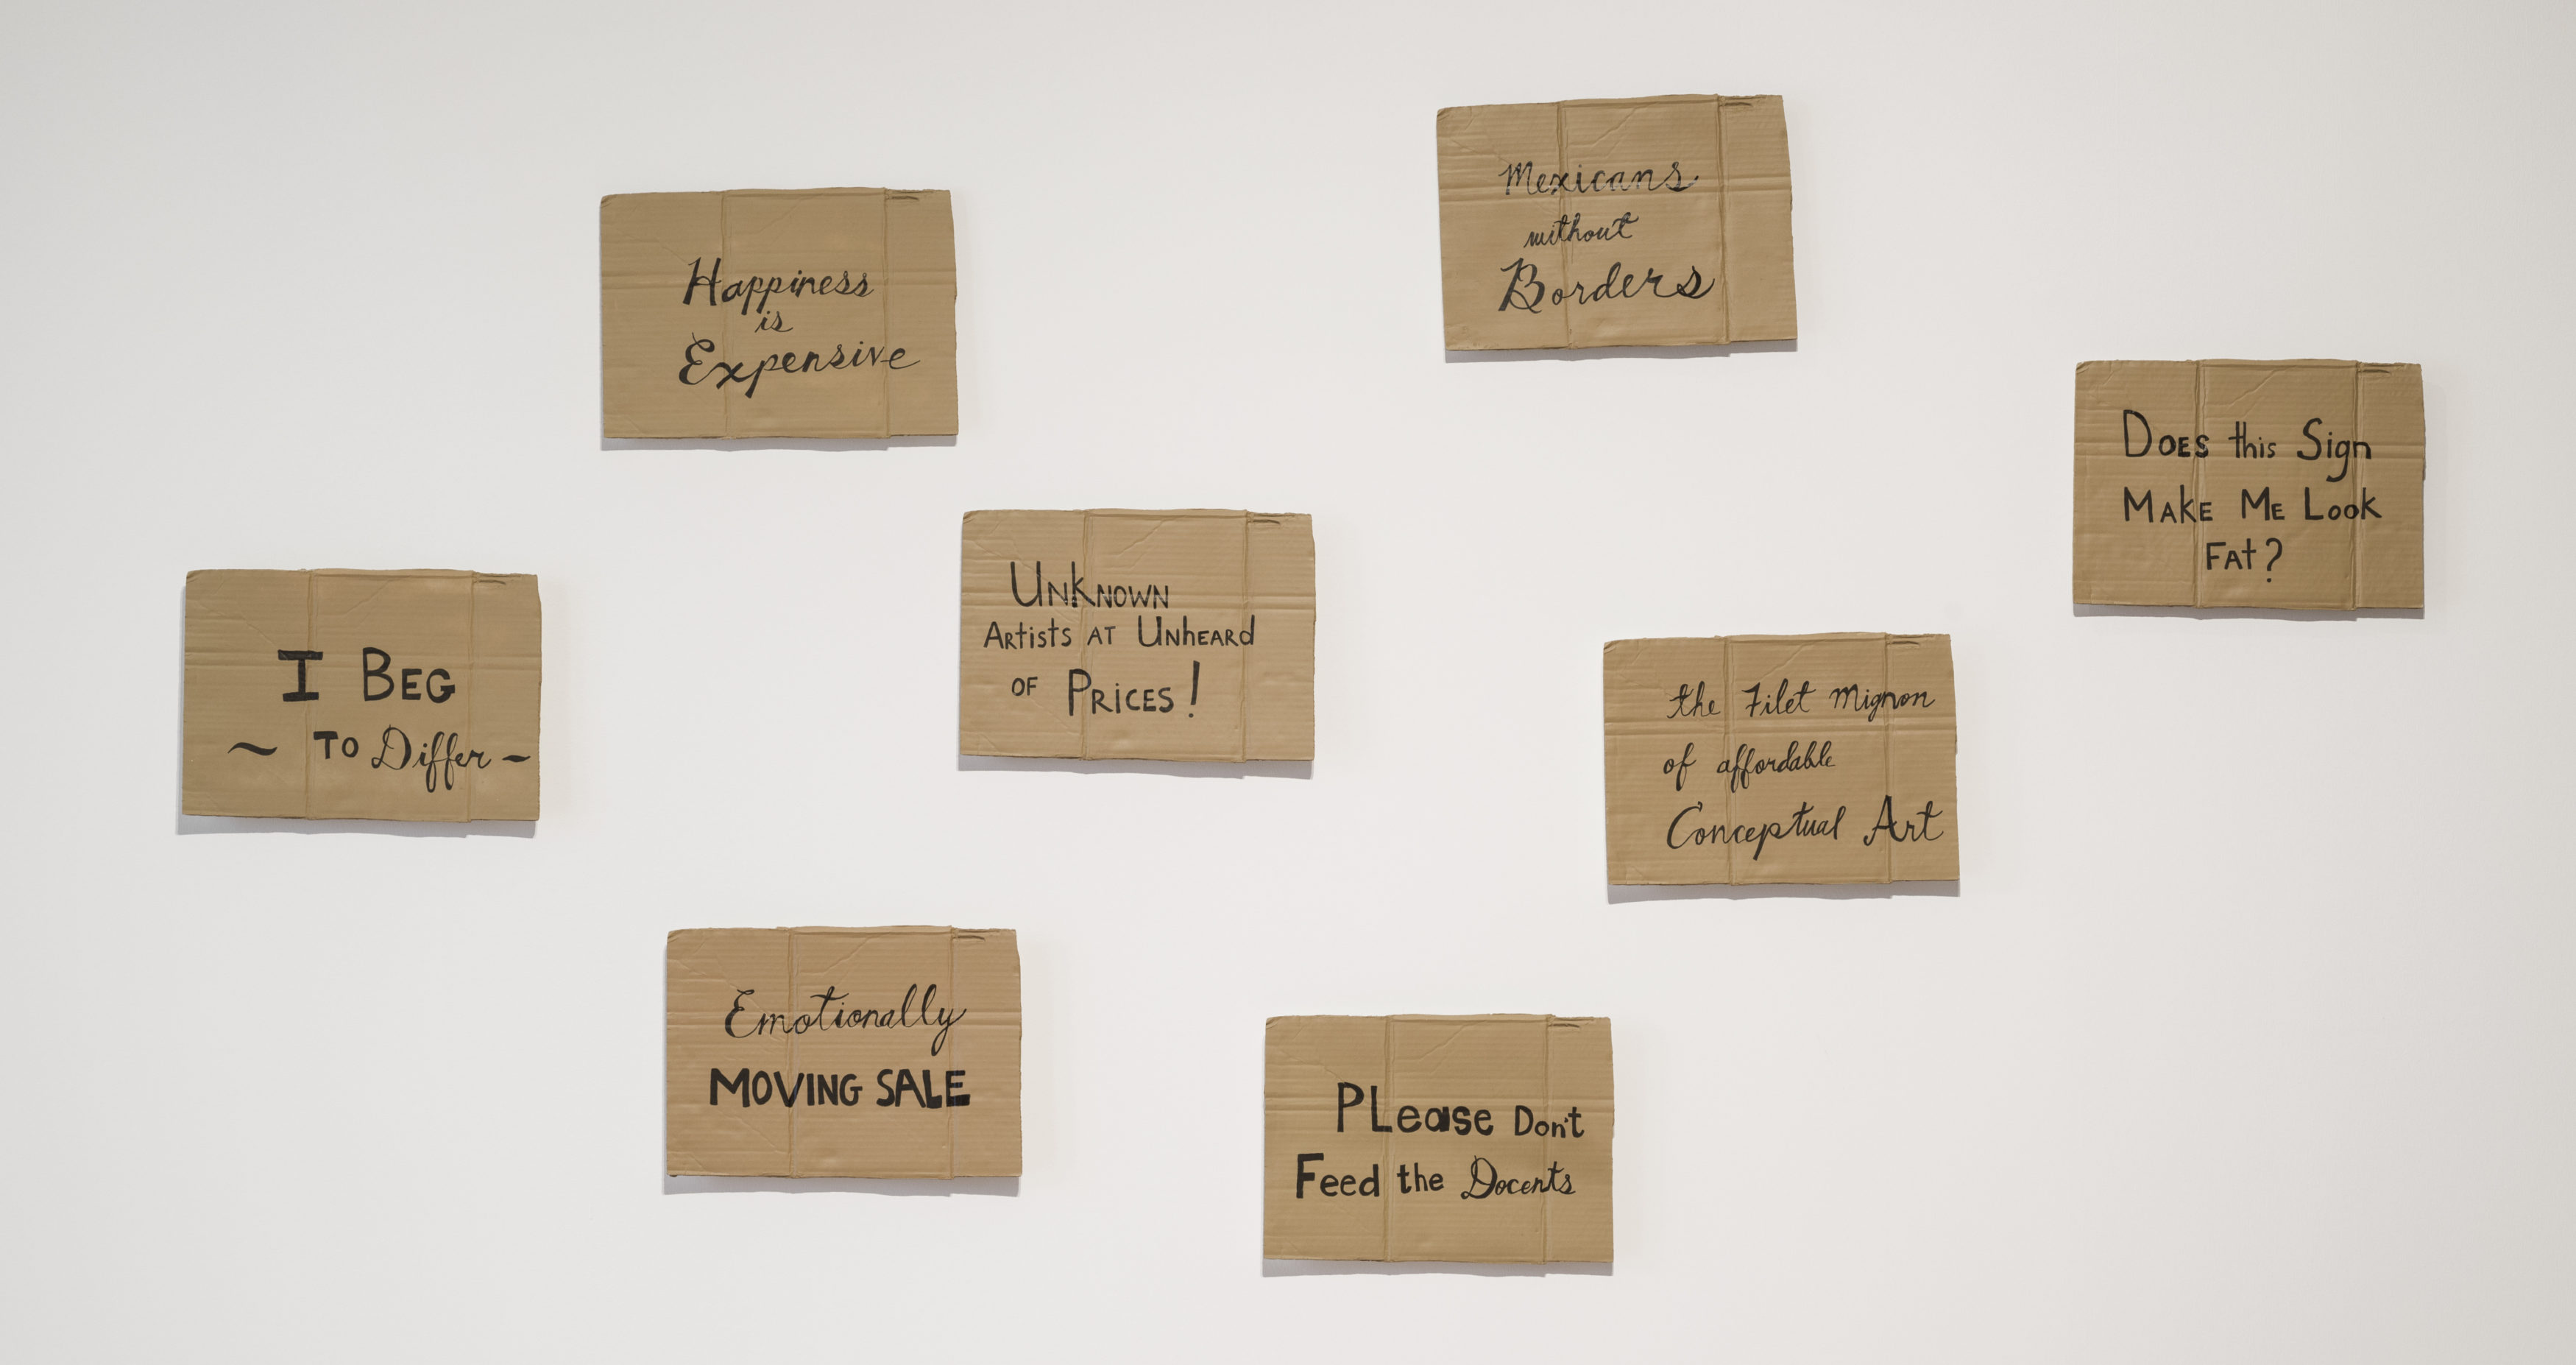 Happiness
is
Expensive
Mexicans
without
Borders
Does this Sign
Make Me Look
Fat?
I Beg
~ to Differ ~
Unknown
Artists at Unheard
of Prices!
the Filet Mignon
of affordable
Conceptual Art
Emotionally
MOVING SALE
Please Don't
Feed the Docents